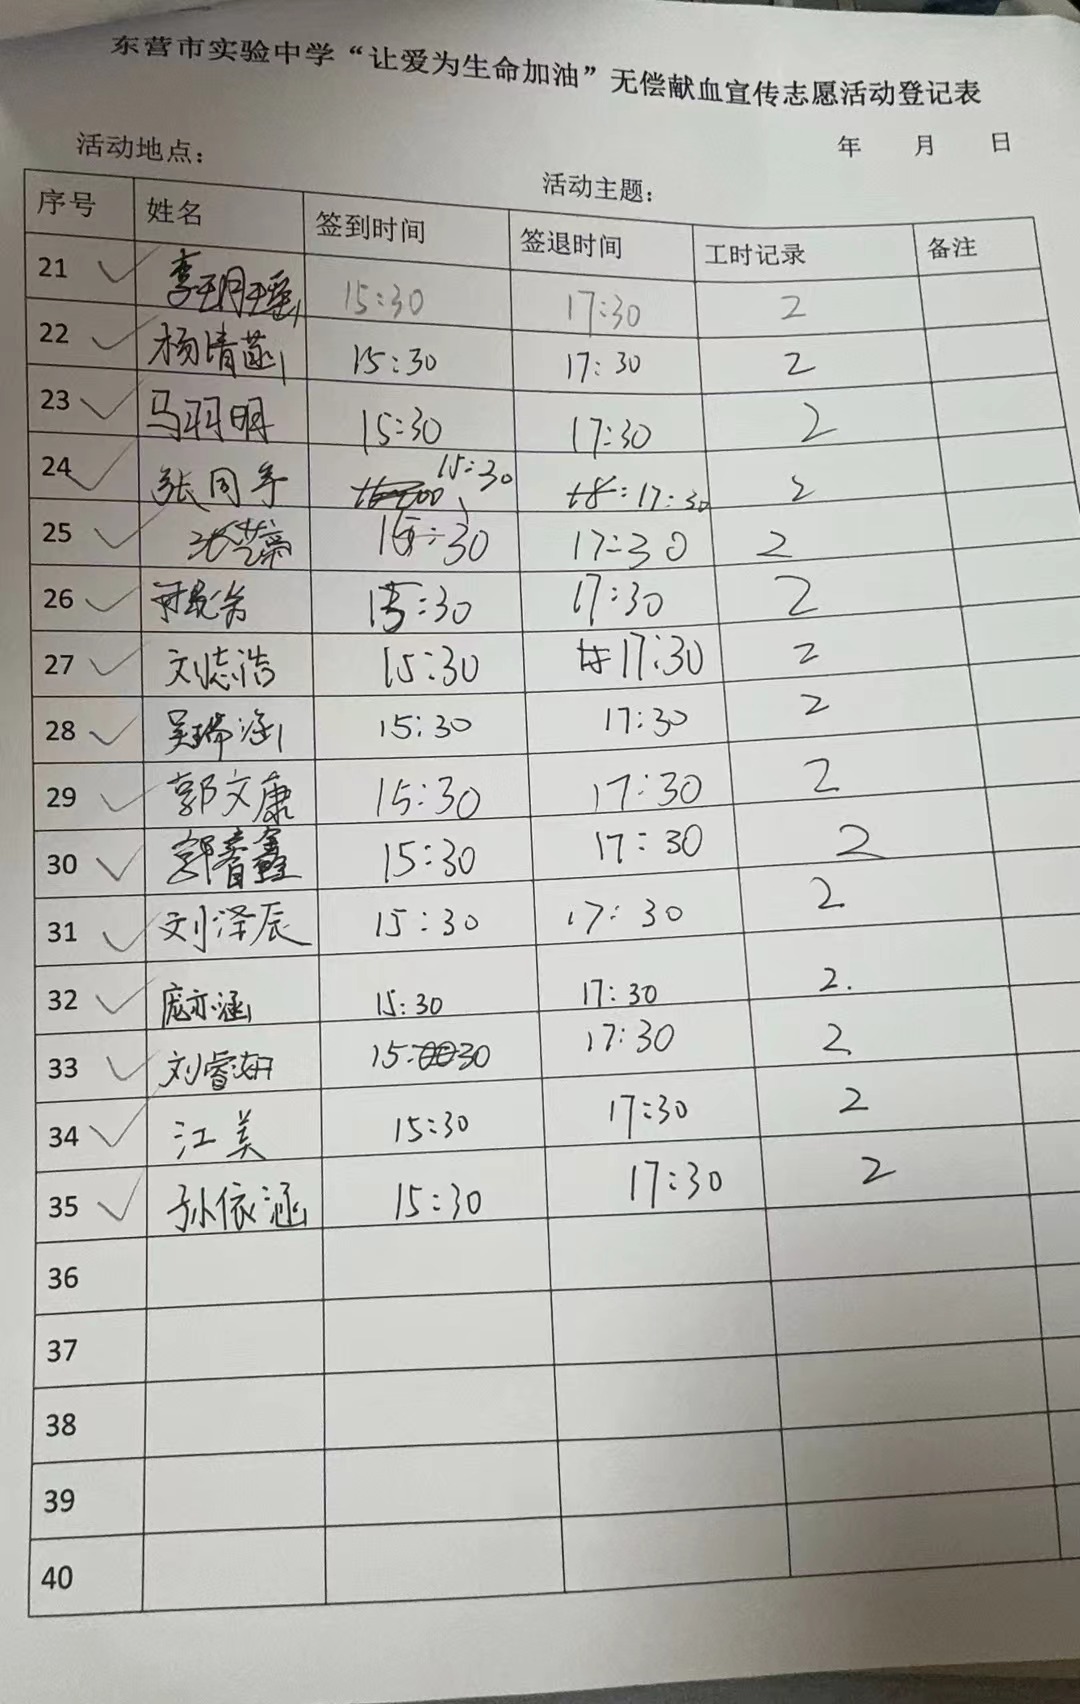 东营市实验中学“让爱为生命加油”无偿献血宣传志愿活动登记表
活动地点： 年 月 日
活动主题：
序号 姓名 签到时间 签退时间 工时记录 备注
21 李玥瑶 15:30 17:30 2
22 杨清菡 15:30 17:30 2
23 马羽明 15:30 17:30 2
24 张同 15:30 17:30 2
25 15:30 17:30 2
26 15:30 17:30 2
27 刘志浩 15:30 17:30 2
28 吴瑞涵 15:30 17:30 2
29 郭文康 15:30 17:30 2
30 郭睿鑫 15:30 17:30 2
31 刘泽辰 15:30 17:30 2
32 庞亦涵 15:30 17:30 2.
33 刘睿妍 15:30 17:30 2
34 江美 15:30 17:30 2
35 孙依涵 15:30 17:30 2
36
37
38
39
40